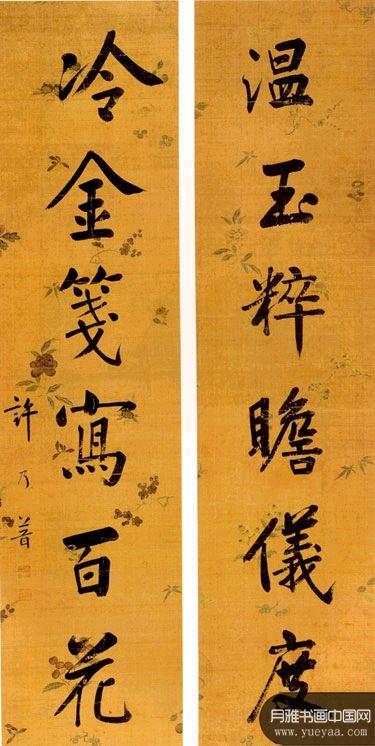 温玉粹瞻儀度
冷金箋寫百花
許乃普
月雅书画中国网
www.yueyaa.com